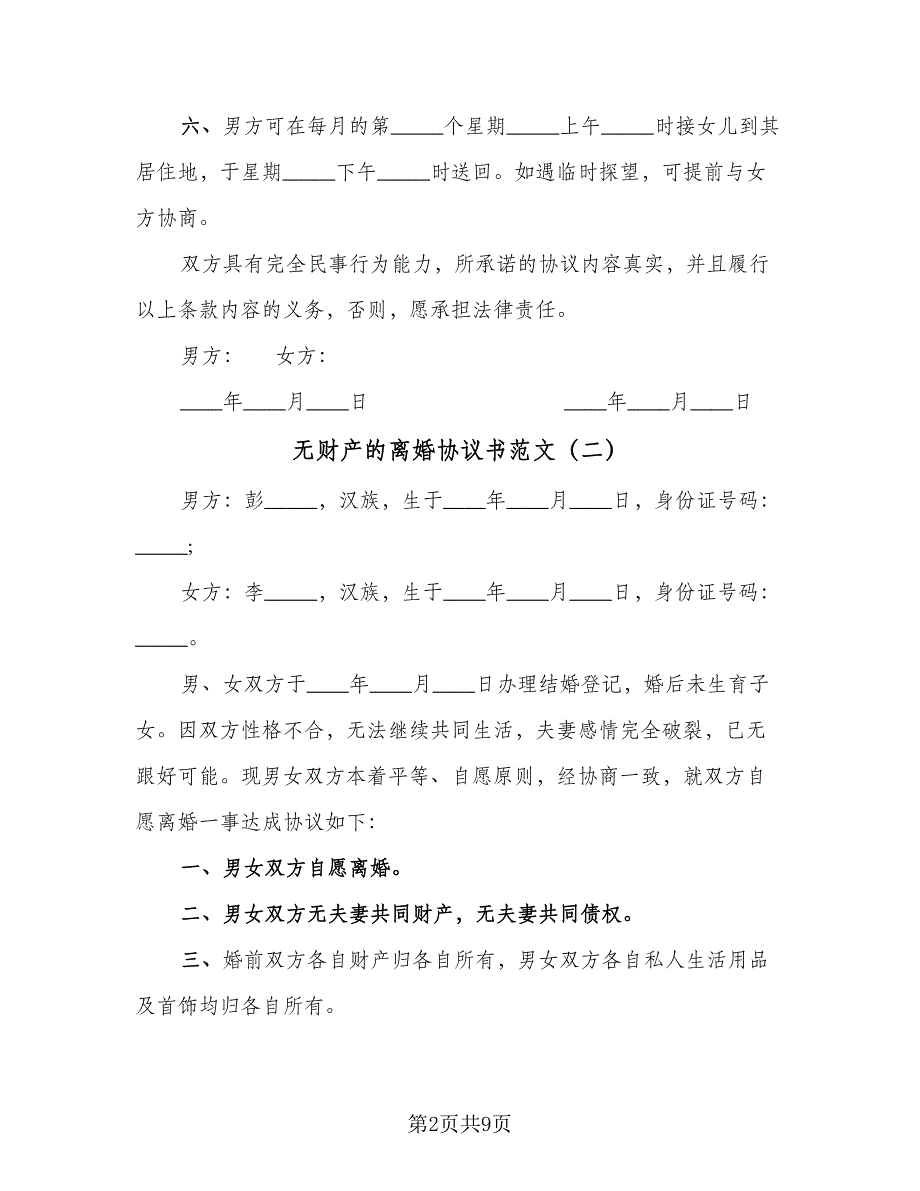 六、男方可在每月的第_____个星期_____上午_____时接女儿到其
居住地，于星期_____下午_____时送回。如遇临时探望，可提前与女
方协商。
双方具有完全民事行为能力，所承诺的协议内容真实，并且履行
以上条款内容的义务，否则，愿承担法律责任。
男方： 女方：
____年____月____日 ____年____月____日
无财产的离婚协议书范文（二）
男方：彭_____，汉族，生于____年____月____日，身份证号码：
_____;
女方：李_____，汉族，生于____年____月____日，身份证号码：
_____。
男、女双方于____年____月____日办理结婚登记，婚后未生育子
女。因双方性格不合，无法继续共同生活，夫妻感情完全破裂，已无
跟好可能。现男女双方本着平等、自愿原则，经协商一致，就双方自
愿离婚一事达成协议如下：
一、男女双方自愿离婚。
二、男女双方无夫妻共同财产，无夫妻共同债权。
三、婚前双方各自财产归各自所有，男女双方各自私人生活用品
及首饰均归各自所有。
第2页共9页